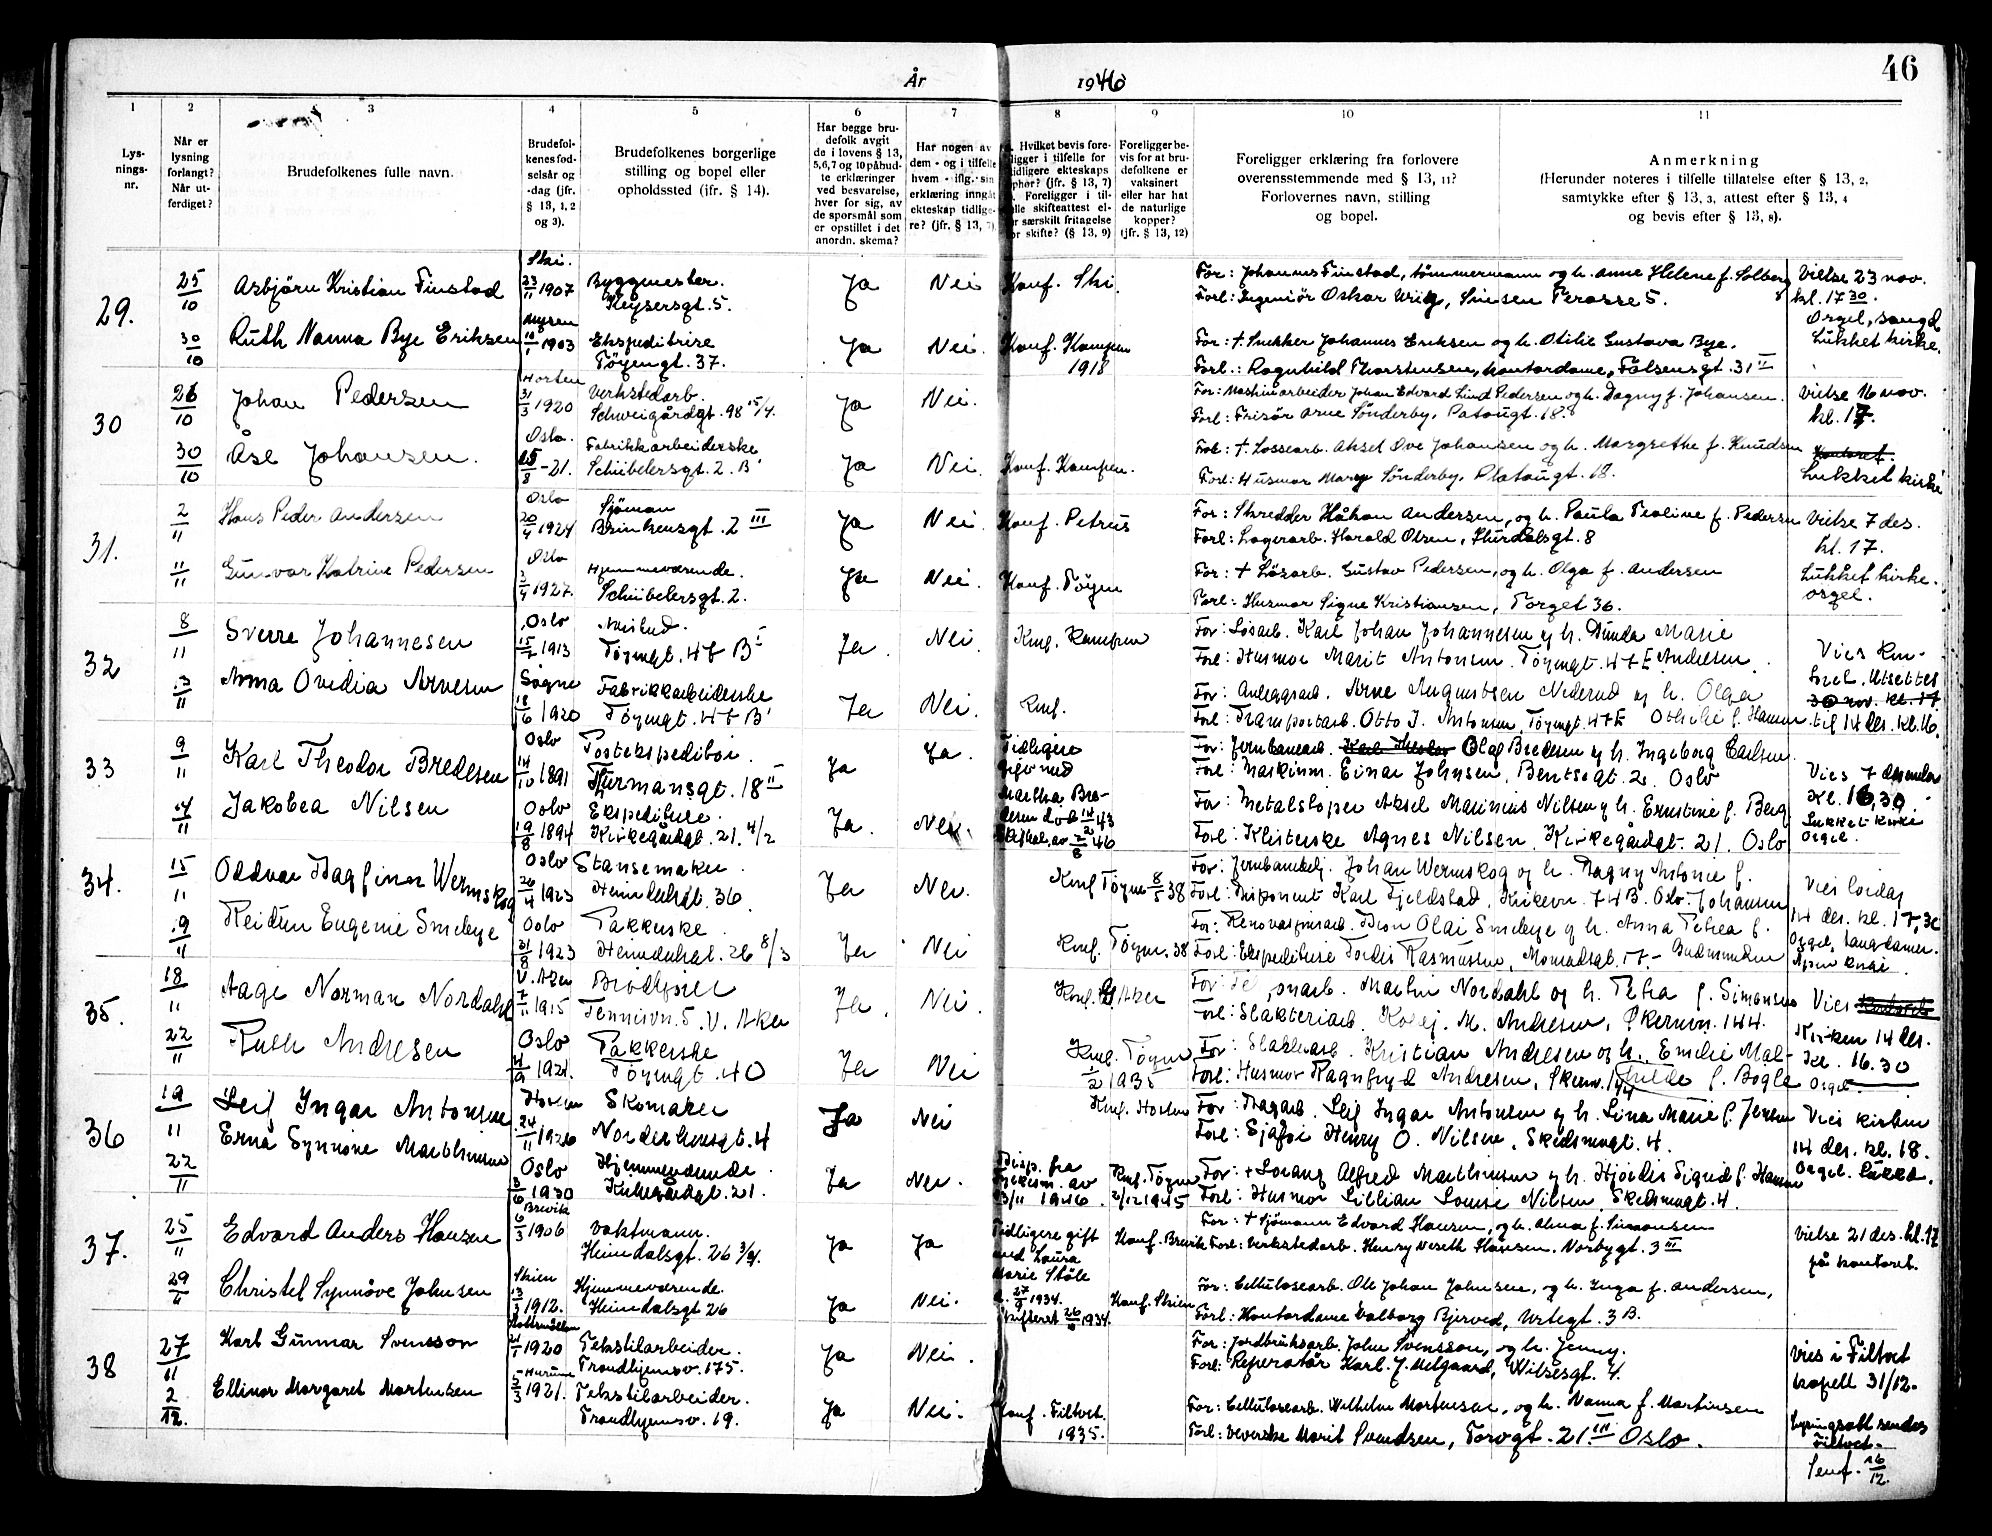 År 1946
46
1 2 3 4 5 6 7 8 9 10 11
Lys-
nings-
nr.
Når er
lysning
forlangt?
Når ut-
ferdiget?
Brudefolkenes fulle navn.
Brudefol-
kenes fød-
selsår og
-dag (jfr.
§ 13, 1, 2
og 3).
Brudefolkenes borgerlige
stilling og bopel eller
opholdssted (ifr. § 14).
Har begge bru-
defolk avgit
de i lovens § 13,
5,6,7 og 10 påbud-
te erklæringer
ved besvarelse,
hver for sig, av
de spørsmål som
er opstillet i det
anordn. skema?
Har nogen av
dem - og i tilfelle
hvem - iflg. sin
erklæring inngåt
ekteskap tidlige-
re? (jfr. § 13, 7)
Hvilket bevis fore-
ligger i tilfelle for
tidligere ekteskaps
ophør? (jfr. § 13, 7)
Foreligger i til-
felle skifteattest el-
ler særskilt fritagelse
for skifte? (§ 13, 9)
Foreligger be-
vis for at bru-
defolkene er
vaksinert
eller har hat
de naturlige
kopper?
(jfr. § 13, 12)
Foreligger erklæring fra forlovere
overensstemmende med § 13, 11?
Forlovernes navn, stilling
og bopel.
Anmerkning
(Herunder noteres i tilfelle tillatelse efter § 13, 2,
samtykke efter § 13, 3, attest efter § 13, 4
og bevis efter § 13, 8).
29.
25/10 Asbjörn Kristian Finstad Ski. 23/11 1907 Byggmester. Keysersgt. 5. Ja Nei Konf. Ski. For: Johannes Finstad, tømmermann og h. Anne Helene f. Solberg
Forl: Ingeniör Oskar Wiig, Sinsen Terasse 5.
Vielse 23 nov.
kl. 17 30.
Orgel, sang
Lukket kirke.
30/10 Ruth Nanna Bye Eriksen Mysen 10/1 1903 Ekspeditrise Töyengt. 37. Ja Nei. Konf. Kampen 1918 For: † Snekker Johannes Eriksen og h. Otilie Gustava Bye.
Forl.: Ragnhild Thorstensen, kontordame, Falsensgt. 31 II
30
26/10 Johan Pedersen Horten 31/3 1920 Verkstedarb. Schweigårdgt. 98 15/4. Ja Nei. For: Maskinarbeider Johan Edvard Lind Pedersen og h. Dagny f. Johansen.
Forl: Frisör Arne Sönderby, Platougt. 18.
Vielse 16 nov.
kl. 17.
30/10 Åse Johansen. Oslo. 15/8 -21. Fabrikkarbeiderske Schübelersgt. 2. B Ja Nei. Konf. Kampen. For: † Lossearb. Aksel Ove Johansen og h. Margrethe f. Knudsen
Forl: Husmor Mary Sönderby, Platougt. 18.
Kontoret.
Lukket kirke
31.
2/11 Hans Peder Andersen Oslo 20/4 1924 Sjömann Brinkensgt. 2 III Ja Nei. Konf. Petrus For: Skredder Håkon Andersen, og h. Paula Teoline f. Pedersen
Forl: Lagerarb. Harald Olsen, Hurdalsgt. 8
Vielse 7 des.
kl. 17.
Lukket kirke.
orgel.
11/11 Gunvor Katrine Pedersen Oslo 3/4 1927. Hjemmeværende. Schübelersgt. 2. Ja Nei. Konf. Töyen For: † Lösarb. Gustav Pedersen, og h. Olga f. Andersen
Forl: Husmor Signe Kristiansen, Torget 36.
32
8/11 Sverre Johannesen Oslo 1913 Töyengt. 47 B Ja. Nei. Konf. Kampen For: Løsarb. Karl Johan Johannesen og h. Marie
Forl: Husmor Marit Antonsen Töyengt. 47 E Andresen.
Vies
Utsettes
30 nov. kl. 17
til 14 des. kl. 16.
13/11 Anna Ovidia Arvesen Søgne 18/6 1920 Fabrikkarbeiderske Töyengt. 47 B Ja Nei. Konf. For: Anleggsarb. Arne Augustsen Nederud og h. Olga
Forl: Transportarb. Otto J. Antonsen, Töyengt. 47 E Othilie f. Hansen.
33
9/11 Karl Theodor Bredesen Oslo 14/10 1891 Postekspeditør. Hermansgt. 18 II Ja Ja. Tidligere gift med Martha Bredesen død 14/2 43 Skifteat. av 2/8 46 For: Jernbanearb. Karl Theodor Olaf Bredesen og h. Ingeborg Carlsen.
Forl: Maskinm. Einar Johnsen, Bentsegt. 2. Oslo
Vies 7 desember
Kl. 16,30.
Lukket kirke
Orgel.
14/11 Jakobea Nilsen Oslo 19/8 1894 Ekspeditrise. Kirkegårdgt. 21. 4/2 Ja. Nei. For: Metalsløper Aksel Marinius Nilsen og h. Ernstine f. Berg
Forl: Klisterske Agnes Nilsen, Kirkegårdgt. 21. Oslo
34.
15/11 Oddvar Dagfinn Wermskog Oslo 26/4 1923 Stansemaker Heimdalsgt. 36 Ja Nei. Konf Tøyen 8/5 38 For: Jernbanebetj. Johan Wermskog og h. Dagny Antonie f.
Forl: Disponent Karl Fjeldstad, Kirkevn. 74 B. Oslo. Johansen
Vies lørdag
14 des. kl. 17,30
Orgel,
Åpen kirke
19/11 Reidun Eugenie Smebye Oslo 31/8 1923 Pakkerske. Heimdalsgt. 26 8/3 Ja Nei Konf. Tøyen. 38 For: Renovasjonsarb. Olai Smebye og h. Anna Petrea f.
Forl: Ekspeditrise Tordis Rasmussen, Gudmundsen
35.
18/11 Aage Norman Nordahl V. Aker 7/11 1915 Brødkjører Tennisvn. 5. V. Aker Ja. Nei Konf. V. Aker For: Martin Nordahl og h. Petra f. Simonsen
Forl: Slakteriarb. Kolbj. M. Andresen, Økernvn. 144.
Vies kontoret
Kirken 14 des.
Kl. 16.30
Orgel.
22/11 Ruth Andresen Oslo 4/9 1921. Pakkerske Töyengt. 40 Ja Nei Konf. Tøyen 1/2 1935 For: Slakteriarb. Kristian Andresen og h. Emilie Mat-
Forl: Husmor Ragnfryd Andresen, hilde f. Bogle
36
19/11 Leif Ingar Antonsen Horten 24/11 1926 Skomaker Norderhovsgt. 4 Ja Nei Konf. Horten For: Leif Ingar Antonsen og h. Lina Marie f. Jensen
Forl: Sjåfør Henry O. Nilsen, Skedsmogt. 4.
Vies kirken
14 des. kl. 18.
Orgel. Lukka.
22/11 Erna Synnøve Marthinsen Oslo 3/6 1930 Hjemmeværende. Kirkegårdgt. 21. Ja Nei. Disp. fra av 13/11 1946. Konf. Tøyen 2/12 1945 For: † Alfred Marthinsen og h. Hjørdis Sigrid f. Hansen
Forl: Husmor Lillian Lovise Nilsen, Skedsmogt. 4.
37.
25/11 Edvard Anders Hansen Brevik 6/3 1906 Vaktmann. Heimdalsgt. 26 3/4. Ja Ja Tidligere gift med Laura Marie Stöle d. 27/9 1934. Skifteret 26/4 1934. Konf. Brevik For: † Sjömann Edvard Hansen, og h. Alma f. Simonsen
Forl: Verkstedarb. Henry Neseth Hansen, Norbygt. 3 III
Vielse 21 des. kl. 17
på kontoret.
29/11 Christel Synnöve Johnsen Skien 13/3 1912. Hjemmeværende. Heimdalsgt 26 Ja Nei. Konf. Skien For: Cellulosearb. Ole Johan Johnsen, og h. Inga f. Andersen,
Forl: Kontordame Valborg Bjerved, Urtegt. 3 B.
38
27/11 Karl Gunnar Svensson 21/1 1920 Tekstilarbeider. Trondhjemsv. 175. Ja Nei. For: Jordbruksarb. John Svensson, og h. Jenny.
Forl: Reperatör Karl J. Melgaard, Wilsesgt. 4.
Vies i Filtvet
kapell 31/12.
2/12. Ellinor Margaret Mortensen Hurum 5/3 1921. Tekstilarbeider. Trondhjemsv. 19. Ja Nei. Konf. Filtvet. 1935. For: Cellulosearb. Wilhelm Mortensen, og h. Nanna f. Martinsen
Forl: Veverske Marit Svendsen, Torvgt. 21 III Oslo.
Lysingsatt. sendes
Filtvet.
Sendt. 16/12.